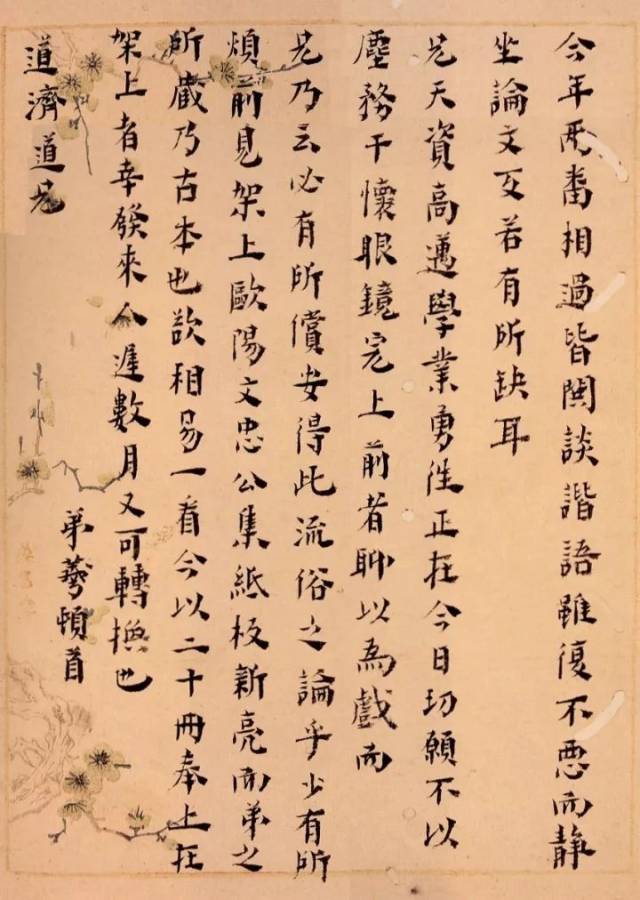 今年两番相過皆閑談諧語雖復不惡而静
坐論文又若有所缺耳
兄天資高邁學業勇往正在今日切願不以
塵務干懷眼鏡完上前者聊以為戲而
兄乃云必有所償安得此流俗之論乎少有所
煩前見架上歐陽文忠公集紙板新亮而弟之
所蔵乃古本也欲相易一看今以二十冊奉上在
架上者幸發來人遲數月又可轉換也
弟 頓首
道濟道兄